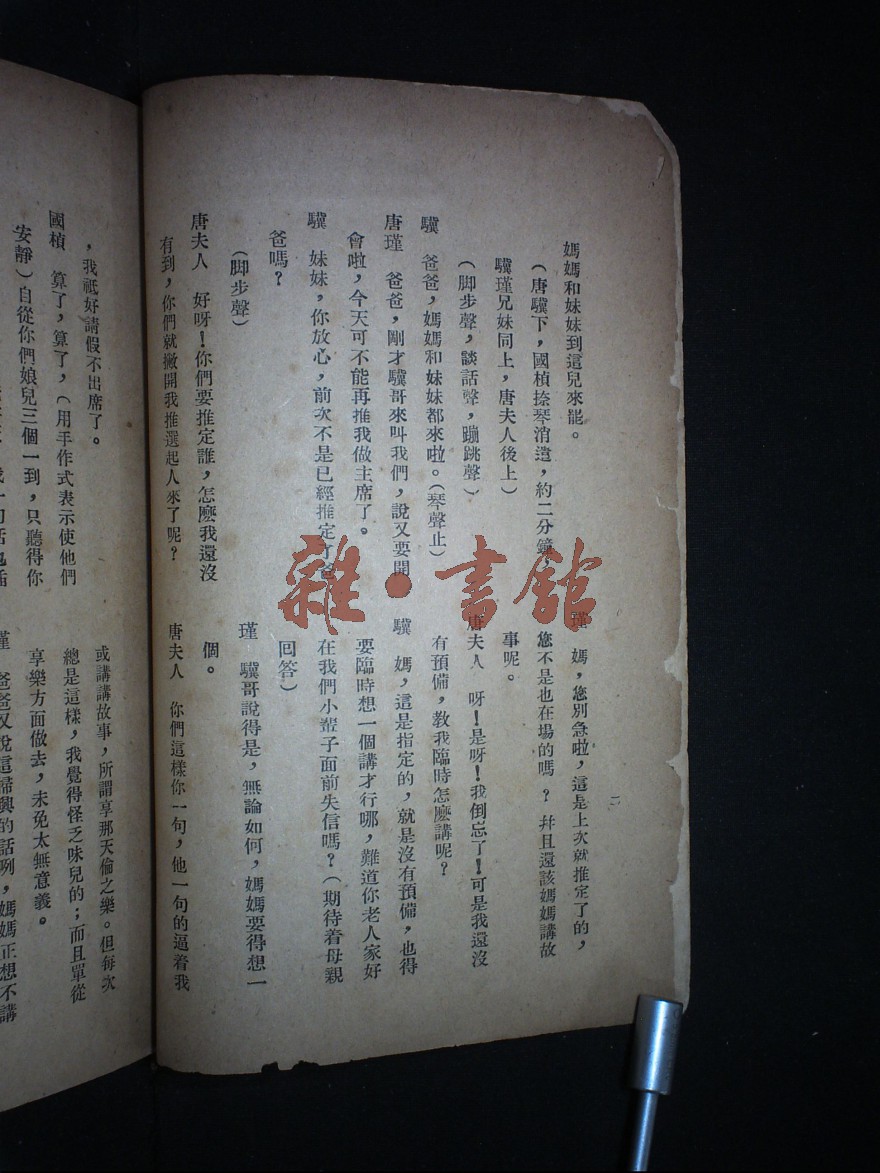 媽媽和妹妹到這兒來罷。
（唐驥下，國楨捺琴消遣，約二分鐘，
驥瑾兄妹同上，唐夫人後上）
（脚步聲，談話聲，蹦跳聲）
驥　爸爸，媽媽和妹妹都來啦。（琴聲止）
唐瑾　爸爸，剛才驥哥來叫我們，說又要開
會啦，今天可不能再推我做主席了。
驥　妹妹，你放心，前次不是已經推定了爸
爸嗎？
（脚步聲）
唐夫人　好呀！你們要推定誰，怎麽我還沒
有到，你們就撇開我推選起人來了呢？
瑾　媽，您別急啦，這是上次就推定了的，
您不是也在塲的嗎？并且還該媽媽講故
事呢。
唐夫人　呀！是呀！我倒忘了！可是我還沒
有預備，教我臨時怎麽講呢？
驥　媽，這是指定的，就是沒有預備，也得
要臨時想一個講才行哪，難道你老人家好
在我們小輩子面前失信嗎？（期待着母親
回答）
瑾　驥哥說得是，無論如何，媽媽要得想一
個。
唐夫人　你們這樣你一句，他一句的逼着我
二
，我祗好請假不出席了。
國楨　算了，算了，（用手作式表示使他們
安靜）自從你們娘兒三個一到，只聽得你
或講講故事，所謂享那天倫之樂。但每次
總是這樣，我覺得怪乏味兒的；而且單從
享樂方面做去，未免太無意義。
瑾　爸爸又說這掃興的話咧，媽媽正想不講
雜·書館